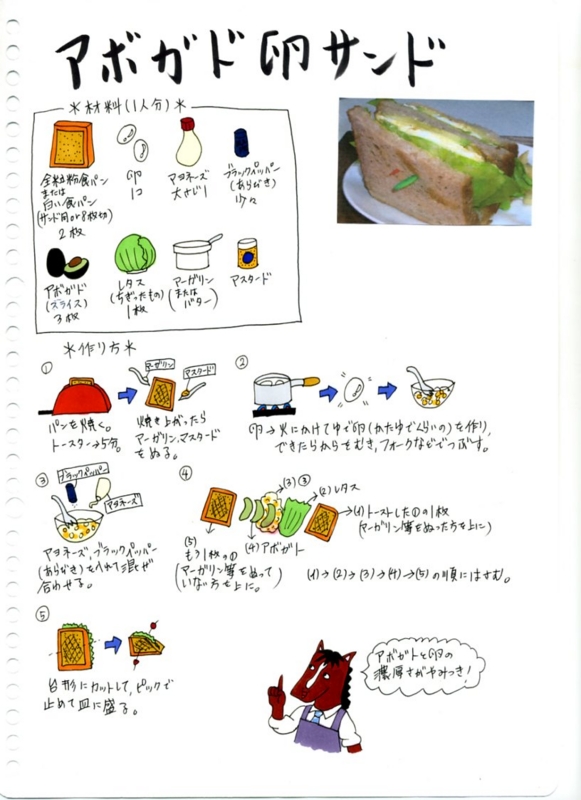 アボガド卵サンド
＊材料(1人分)＊
全粒粉食パン
または
白い食パン
(サンド用or8枚切)
2枚
卵
1コ
マヨネーズ
大さじ1
ブラックペッパー
(あらびき)
少々
アボガド
(スライス)
3枚
レタス
(ちぎったもの)
1枚
マーガリン
(または
バター)
マスタード
＊作り方＊
①
マーガリン
マスタード
パンを焼く。
トースター→5分。
焼き上がったら
マーガリン、マスタード
をぬる。
②
卵→火にかけてゆで卵(かたゆでくらいの)を作り、
できたらからをむき、フォークなどでつぶす。
③
ブラックペッパー
マヨネーズ
マヨネーズ、ブラックペッパー
(あらびき)を入れて混ぜ
合わせる。
④
(3)③
(2)レタス
(1)トーストした①の1枚
(マーガリン等をぬった方を上に)
(4)アボガト
(5)
もう1枚の①
(マーガリン等をぬって
いない方を上に。)
(1)→(2)→(3)→(4)→(5)の順にはさむ。
⑤
台形にカットして、ピックで
止めて皿に盛る。
アボガトと卵の
濃厚さがやみつき！